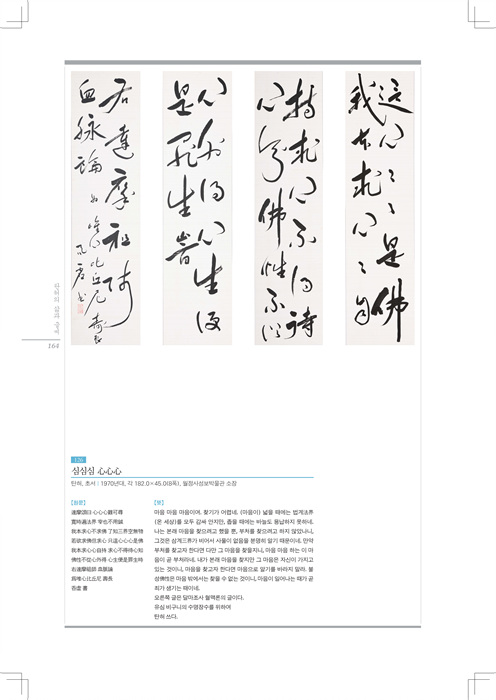 這心心心是佛
我本求心心自
持求心不得待
心知佛性不從
心外得心生便
是罪生時
右達摩祖師
血脉論 爲唯心比丘尼 壽長
呑虛 書
탄허의 삶과 숨결
164
126
심심심 心心心
탄허, 초서 | 1970년대, 각 182.0×45.0(8폭), 월정사성보박물관 소장
【원문】
達磨頌曰 心心心難可尋
寬時遍法界 窄也不用鍼
我本求心不求佛 了知三界空無物
若欲求佛但求心 只這心心心是佛
我本求心心自持 求心不得待心知
佛性不從心外得 心生便是罪生時
右達摩祖師 血脉論
爲唯心比丘尼 壽長
呑虛 書
【뜻】
마음 마음 마음이여, 찾기가 어렵네. (마음이) 넓을 때에는 법계法界
(온 세상)를 모두 감싸 안지만, 좁을 때에는 바늘도 용납하지 못하네.
나는 본래 마음을 찾으려고 했을 뿐, 부처를 찾으려고 하지 않았나니,
그것은 삼계三界가 비어서 사물이 없음을 분명히 알기 때문이네. 만약
부처를 찾고자 한다면 다만 그 마음을 찾을지니, 마음 마음 하는 이 마
음이 곧 부처라네. 내가 본래 마음을 찾지만 그 마음은 자신이 가지고
있는 것이니, 마음을 찾고자 한다면 마음으로 알기를 바라지 말라. 불
성佛性은 마음 밖에서는 찾을 수 없는 것이니, 마음이 일어나는 때가 곧
죄가 생기는 때이네.
오른쪽 글은 달마조사 혈맥론의 글이다.
유심 비구니의 수명장수를 위하여
탄허 쓰다.